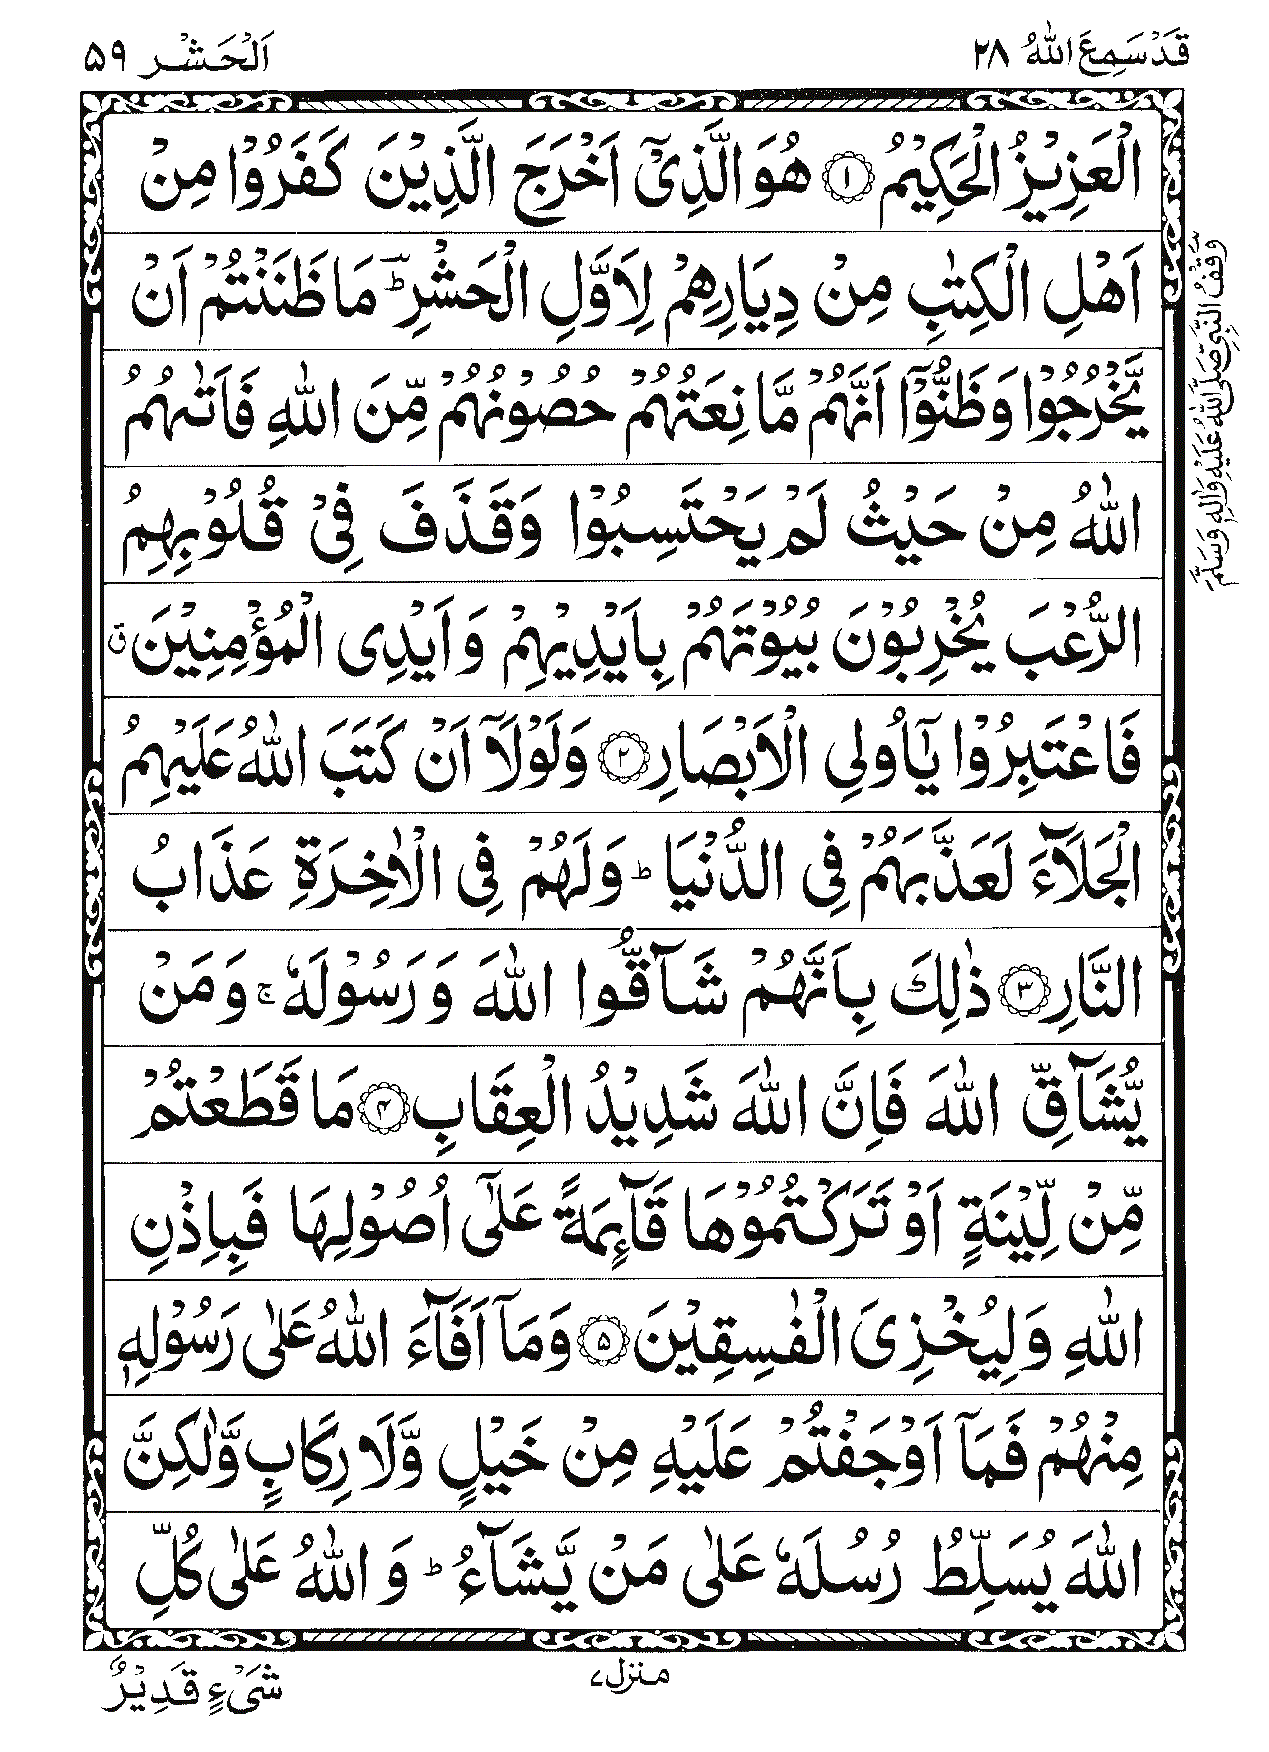 قَدْ سَمِعَ اللّٰهُ ٢٨
اَلْحَشْر ۵۹
الْعَزِيْزُ الْحَكِيْمُ ۝۱ هُوَ الَّذِيْۤ اَخْرَجَ الَّذِيْنَ كَفَرُوْا مِنْ
اَهْلِ الْكِتٰبِ مِنْ دِيَارِهِمْ لِاَوَّلِ الْحَشْرِ ؔؕ مَا ظَنَنْتُمْ اَنْ
يَّخْرُجُوْا وَظَنُّوْۤا اَنَّهُمْ مَّانِعَتُهُمْ حُصُوْنُهُمْ مِّنَ اللّٰهِ فَاَتٰىهُمُ
اللّٰهُ مِنْ حَيْثُ لَمْ يَحْتَسِبُوْا وَقَذَفَ فِيْ قُلُوْبِهِمُ
الرُّعْبَ يُخْرِبُوْنَ بُيُوْتَهُمْ بِاَيْدِيْهِمْ وَاَيْدِي الْمُؤْمِنِيْنَ ۗ
فَاعْتَبِرُوْا يٰۤاُولِي الْاَبْصَارِ ۝۲ وَلَوْلَاۤ اَنْ كَتَبَ اللّٰهُ عَلَيْهِمُ
الْجَلَآءَ لَعَذَّبَهُمْ فِي الدُّنْيَا ؕ وَلَهُمْ فِي الْاٰخِرَةِ عَذَابُ
النَّارِ ۝۳ ذٰلِكَ بِاَنَّهُمْ شَآقُّوا اللّٰهَ وَرَسُوْلَهٗ ۚ وَمَنْ
يُّشَآقِّ اللّٰهَ فَاِنَّ اللّٰهَ شَدِيْدُ الْعِقَابِ ۝۴ مَا قَطَعْتُمْ
مِّنْ لِّيْنَةٍ اَوْ تَرَكْتُمُوْهَا قَآئِمَةً عَلٰۤى اُصُوْلِهَا فَبِاِذْنِ
اللّٰهِ وَلِيُخْزِيَ الْفٰسِقِيْنَ ۝۵ وَمَاۤ اَفَآءَ اللّٰهُ عَلٰى رَسُوْلِهٖ
مِنْهُمْ فَمَاۤ اَوْجَفْتُمْ عَلَيْهِ مِنْ خَيْلٍ وَّلَا رِكَابٍ وَّلٰكِنَّ
اللّٰهَ يُسَلِّطُ رُسُلَهٗ عَلٰى مَنْ يَّشَآءُ ؕ وَاللّٰهُ عَلٰى كُلِّ
وَقْفُ النَّبِيِّ صَلَّى اللّٰهُ عَلَيْهِ وَاٰلِهٖ وَسَلَّمَ
منزل ۷
شَيْءٍ قَدِيْرٌ